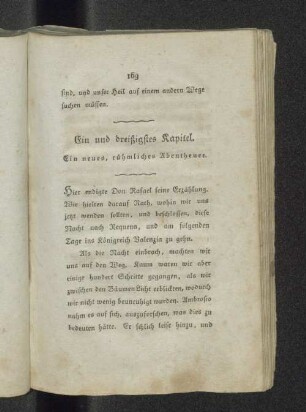 169
sind, und unser Heil auf einem andern Wege
suchen müssen.
Ein und dreißigstes Kapitel.
Ein neues, rühmliches Abentheuer.
Hier endigte Don Rafael seine Erzählung.
Wir hielten darauf Rath, wohin wir uns
jetzt wenden sollten, und beschlossen, diese
Nacht nach Requena, und am folgenden
Tage ins Königreich Valenzia zu gehn.
Als die Nacht einbrach, machten wir
uns auf den Weg. Kaum waren wir aber
einige hundert Schritte gegangen, als wir
zwischen den Bäumen Licht erblickten, wodurch
wir nicht wenig beunruhigt wurden. Ambrosio
nahm es auf sich, auszuforschen, was dies zu
bedeuten hätte. Er schlich leise hinzu, und